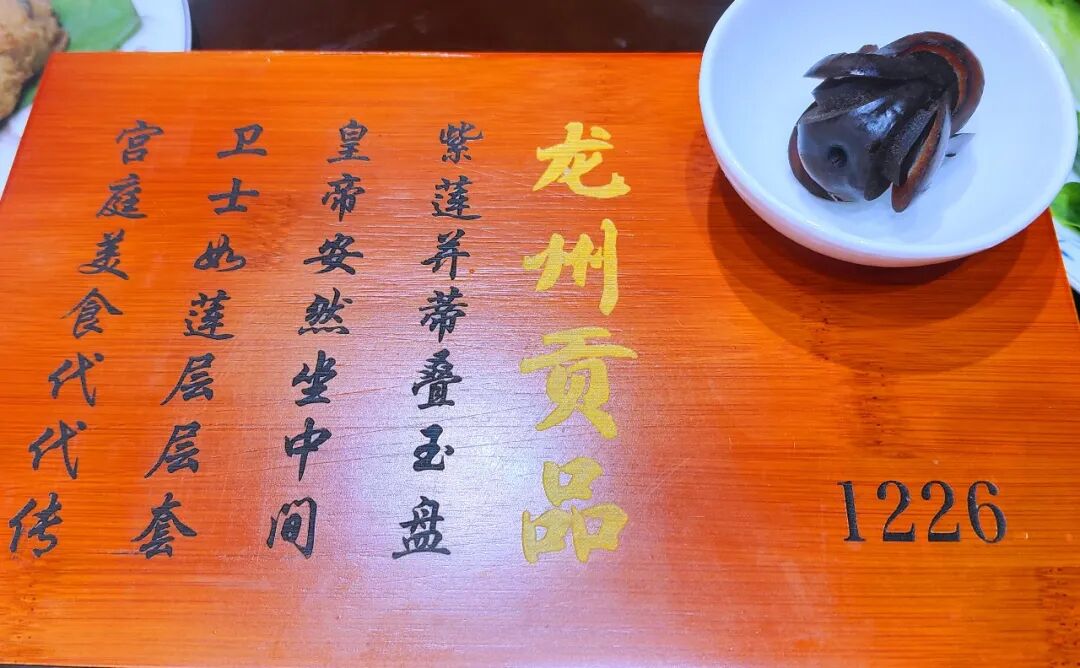 龙州贡品
紫莲并蒂叠玉盘
皇帝安然坐中间
卫士如莲层层套
宫庭美食代代传
1226